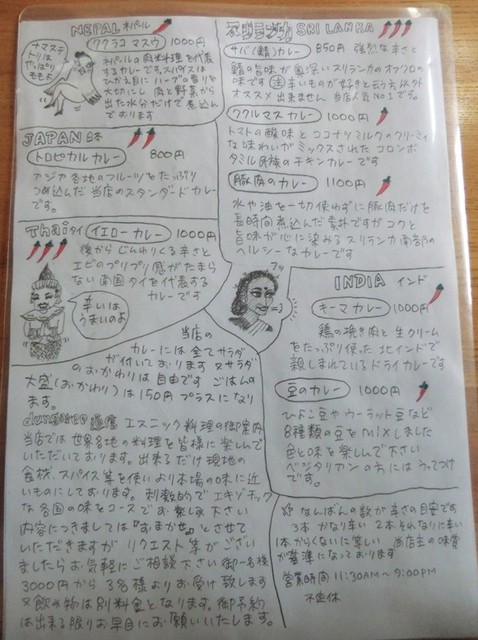 NEPAL ネパール
ククラコ マスウ 1000円
ナマステ
トリは
やっぱり
ももよ
ネパールの家庭料理を代表
するカレーです。スパイスは
ひかえ目に ハーブの香りを
大切にし 肉と野菜から
出た水分だけで煮込ん
でおります
JAPAN 日本
トロピカルカレー 800円
アジア各地のフルーツをたっぷり
つめ込んだ 当店のスタンダードカレー
です。
Thai タイ イエローカレー 1000円
後からじんわりくる辛さと
エビのプリプリ感がたまら
ない 南国タイを代表する
カレーです
辛いは
うまいのよ
スリランカ SRI LANKA
サバ(鯖)カレー 850円 強烈な辛さと
鯖の旨味が奥深いスリランカのオフクロの
味です 辛いものが好きと云う方以外
オススメ出来ません 当店人気NO1です。
ククルマスカレー 1000円
トマトの酸味とココナツミルクのクリーミィ
な味わいがミックスされた コロンボ
タミル民族のチキンカレーです
豚肉のカレー 1100円
水や油を一切使わずに豚肉だけを
長時間煮込んだ素朴ですがコクと
旨味が心に染みる スリランカ南部の
ヘルシーなカレーです
フッ
INDIA インド
キーマカレー 1000円
鶏の挽き肉と生クリーム
をたっぷり使った北インドで
親しまれているドライカレーです
豆のカレー 1000円
ひよこ豆やウーラット豆など
8種類の豆をmixしました
色と味を楽しんで下さい
ベジタリカンの方にはうってつけ
です。
当店の
カレーには全てサラダ
が付いております 又サラダ
のおかわりは自由です ごはんの
大盛(おかわり)は150円プラスになり
ます。
エスニック料理の御案内
当店では世界各地の料理を皆様に楽しんで
いただいております。出来るだけ現地の
食材、スパイス等を使いより本場の味に近
いものにしております。刺激的でエキゾチック
な各国の味をコースでお楽しみ下さい
内容につきましては『おまかせ』とさせて
いただきますが リクエスト等がござい
ましたらお気軽にご相談下さい 御一名様
3000円から3名様よりお受け致します
又飲み物は別料金となります。御予約
は出来る限りお早目にお願いいたします。
なんばんの数が辛さの目安です
3本かなり辛い 2本それなりに辛い
1本からくないに等しい 当店主の味覚
が基準になっております
営業時間 11:30AM〜9:00PM
不定休